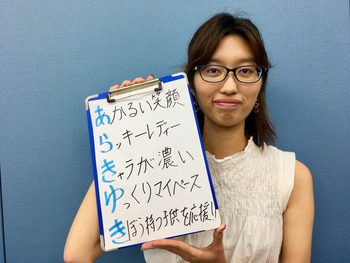 あかるい笑顔
らッキーレディー
きャラが濃い
ゆっくりマイペース
きぼう持つ子供を応援!!